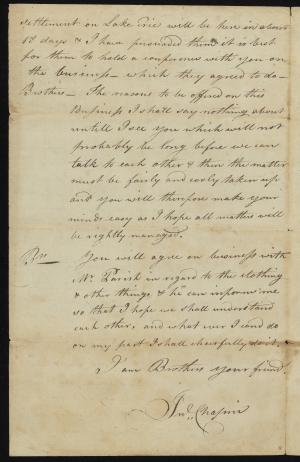 settlement on Lake Erie will be here in about
10 days & I have persuaded them it is best
for them to hold a conference with you on
the business — which they agreed to do —
Brothers — The reasons to be offered on this
Business I shall say nothing about
untill I see you which will not
probably be long before we can
talk to each other & then the matter
must be fairly and cooly taken up
and you will therefore make your
minds easy as I hope all matters will
be rightly managed.
Brs You will agree on business with
Mr. Parish in regard to the cloathing
& other things & he can inform me
so that I hope we shall understand
each other, and what ever I can do
on my part I shall cheerfully do it.
I am Brothers your friend
Chapin